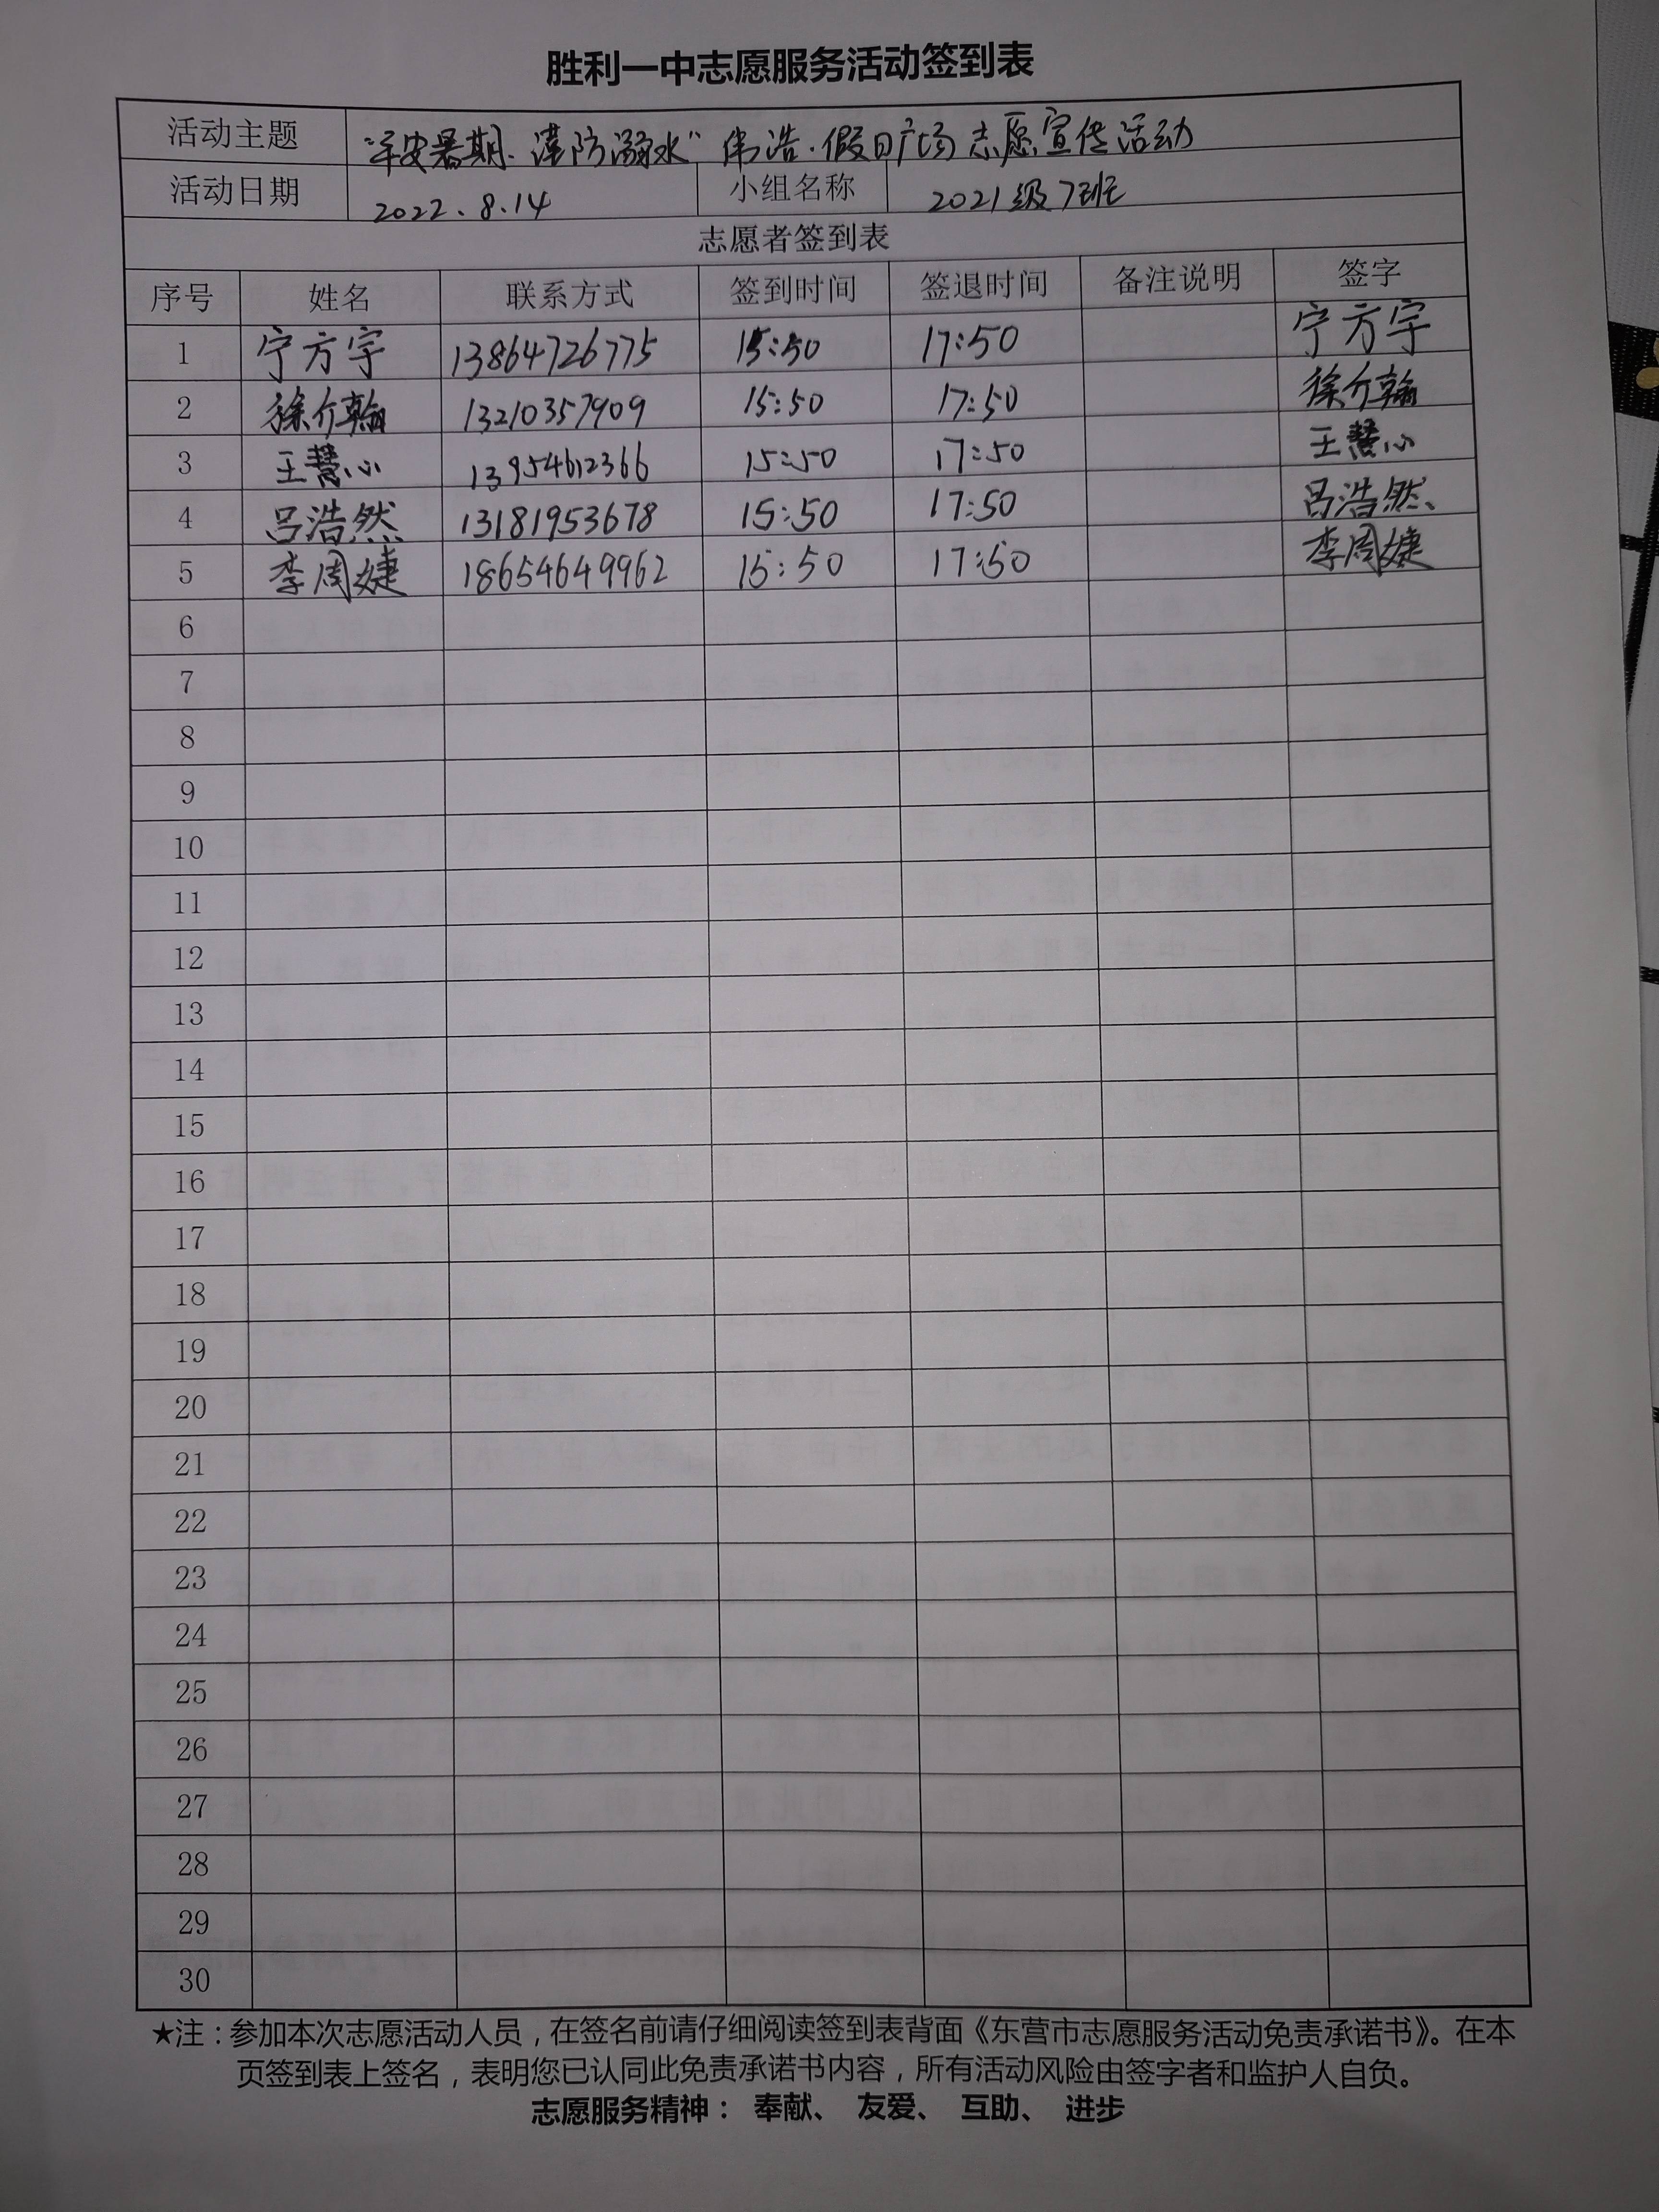 胜利一中志愿服务活动签到表
活动主题 “平安暑期·谨防溺水”伟浩·假日广场志愿宣传活动
活动日期 2022.8.14 小组名称 2021级7班
志愿者签到表
序号 姓名 联系方式 签到时间 签退时间 备注说明 签字
1 宁方宇 13864726775 15:50 17:50 宁方宇
2 徐介翰 13210357909 15:50 17:50 徐介翰
3 王慧心 13954612366 15:50 17:50 王慧心
4 吕浩然 13181953678 15:50 17:50 吕浩然
5 李周婕 18654649962 15:50 17:50 李周婕
6
7
8
9
10
11
12
13
14
15
16
17
18
19
20
21
22
23
24
25
26
27
28
29
30
★注：参加本次志愿活动人员，在签名前请仔细阅读签到表背面《东营市志愿服务活动免责承诺书》。在本
页签到表上签名，表明您已认同此免责承诺书内容，所有活动风险由签字者和监护人自负。
志愿服务精神： 奉献、 友爱、 互助、 进步